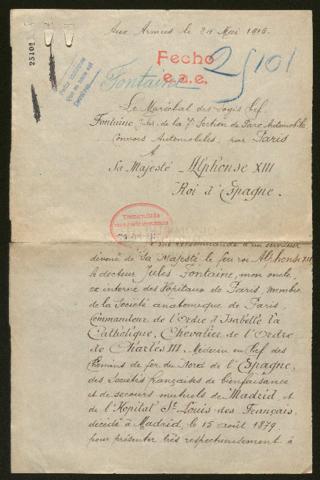 Aux Armées le 20 Mai 1916.
25101
Fecho
e.a.e.
25101
Fontaine
Le Maréchal des Logis Chef
Fontaine, Jules, de la 7e Section de Parc Automobile
Convois Automobiles, par Paris
A
Sa Majesté Alphonse XIII
Roi d'Espagne.
d'un serviteur
dévoué de Sa Majesté le feu roi Alphonse XII
le docteur Jules Fontaine, mon oncle,
ex interne des Hôpitaux de Paris, membre
de la Société anatomique de Paris
Commandeur de l'Ordre d'Isabelle la
Catholique, Chevalier de l'Ordre
de Charles III, Médecin en Chef des
Chemins de fer du Nord de l'Espagne,
des Sociétés françaises de bienfaisance
et de secours mutuels de Madrid et
de l'Hôpital St Louis des Français,
décédé à Madrid, le 15 août 1879
pour présenter très respectueusement à